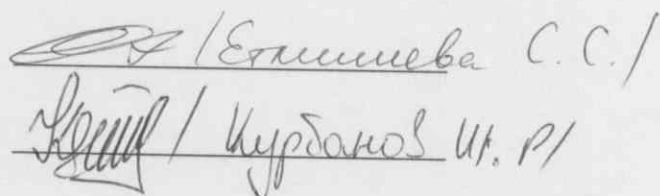 /Етмишева С. С./
/ Курбанов Ш. Р/